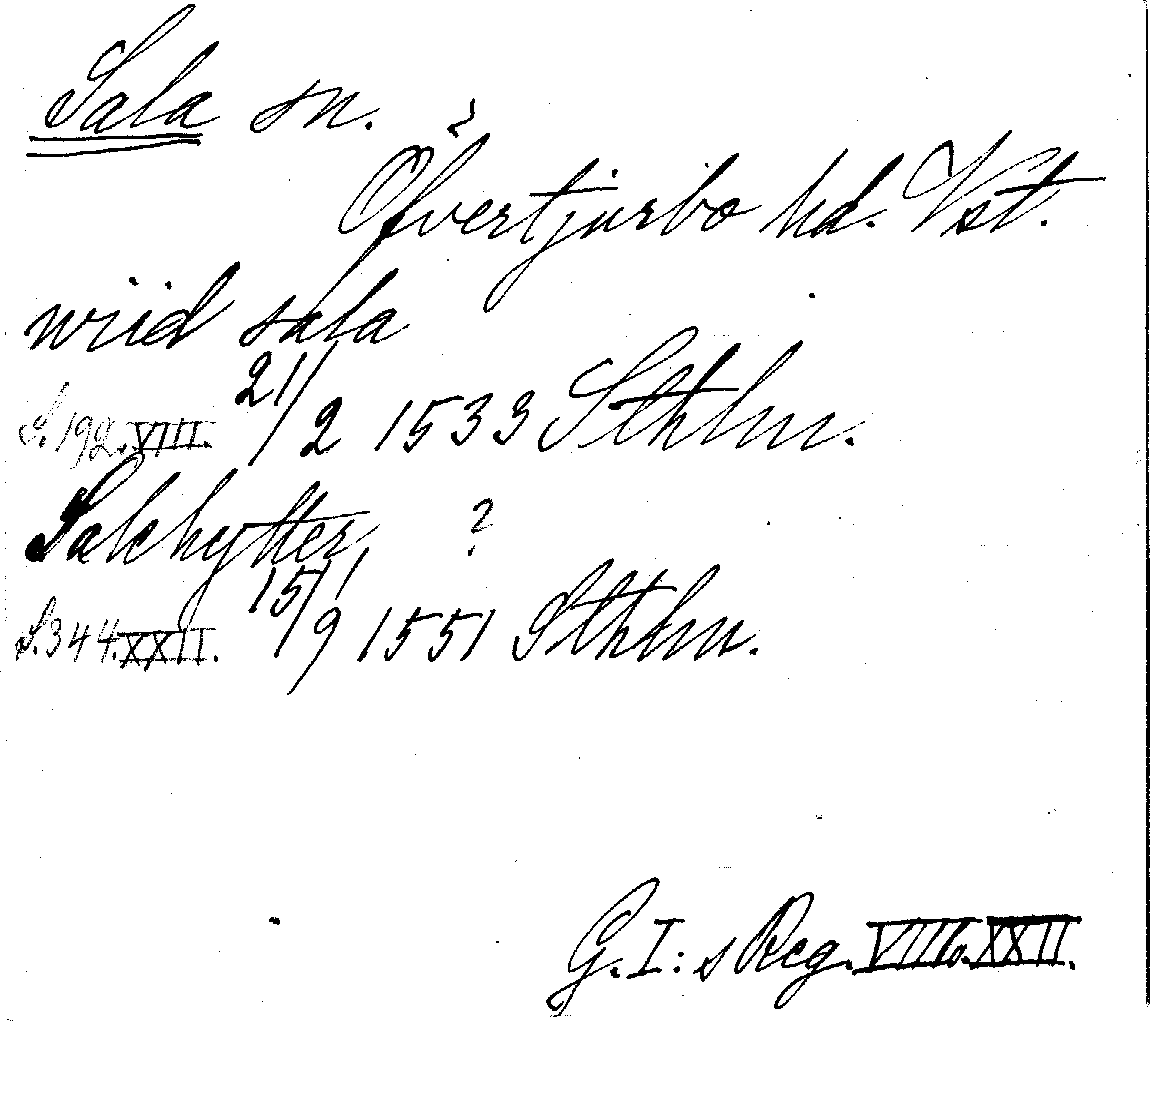 Sala sn.
Öfvertjurbo hd. Vst.
wiid sala
S. 192. VIII. 21/2 1533 Sthlm.
Salehytter ?
S. 344. XXII. 15/9 1551 Sthlm.
G. I: s Reg. VIII o. XXII.